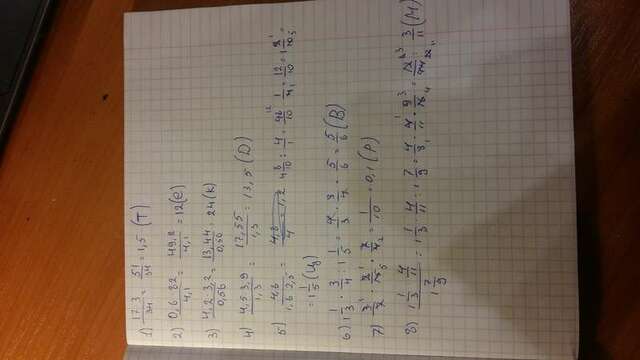 1) 17·3/34 = 51/34 = 1,5 (Т)
2) 0,6·82/4,1 = 49,2/4,1 = 12 (е)
3) 4,2·3,2/0,56 = 13,44/0,56 = 24 (К)
4) 4,5·3,9/1,3 = 17,55/1,3 = 13,5 (D)
5) 4,8/1,6·2,5 = 4,8/4 = 1,2 4 8/10 : 4/1 = 48/10 · 1/4 = 12/10 = 1 2/10 =
= 1 1/5 (Ц)
6) 1 1/3 · 3/4 : 1 1/5 = 4/3 · 3/4 · 5/6 = 5/6 (В)
7) 3/7 · 2/15 · 7/4 = 1/10 = 0,1 (Р)
8) 1 1/3 · 4/11 / 1 7/9 = 1 1/3 · 4/11 : 1 7/9 = 4/3 · 4/11 · 9/16 = 12/44 = 3/11 (М)